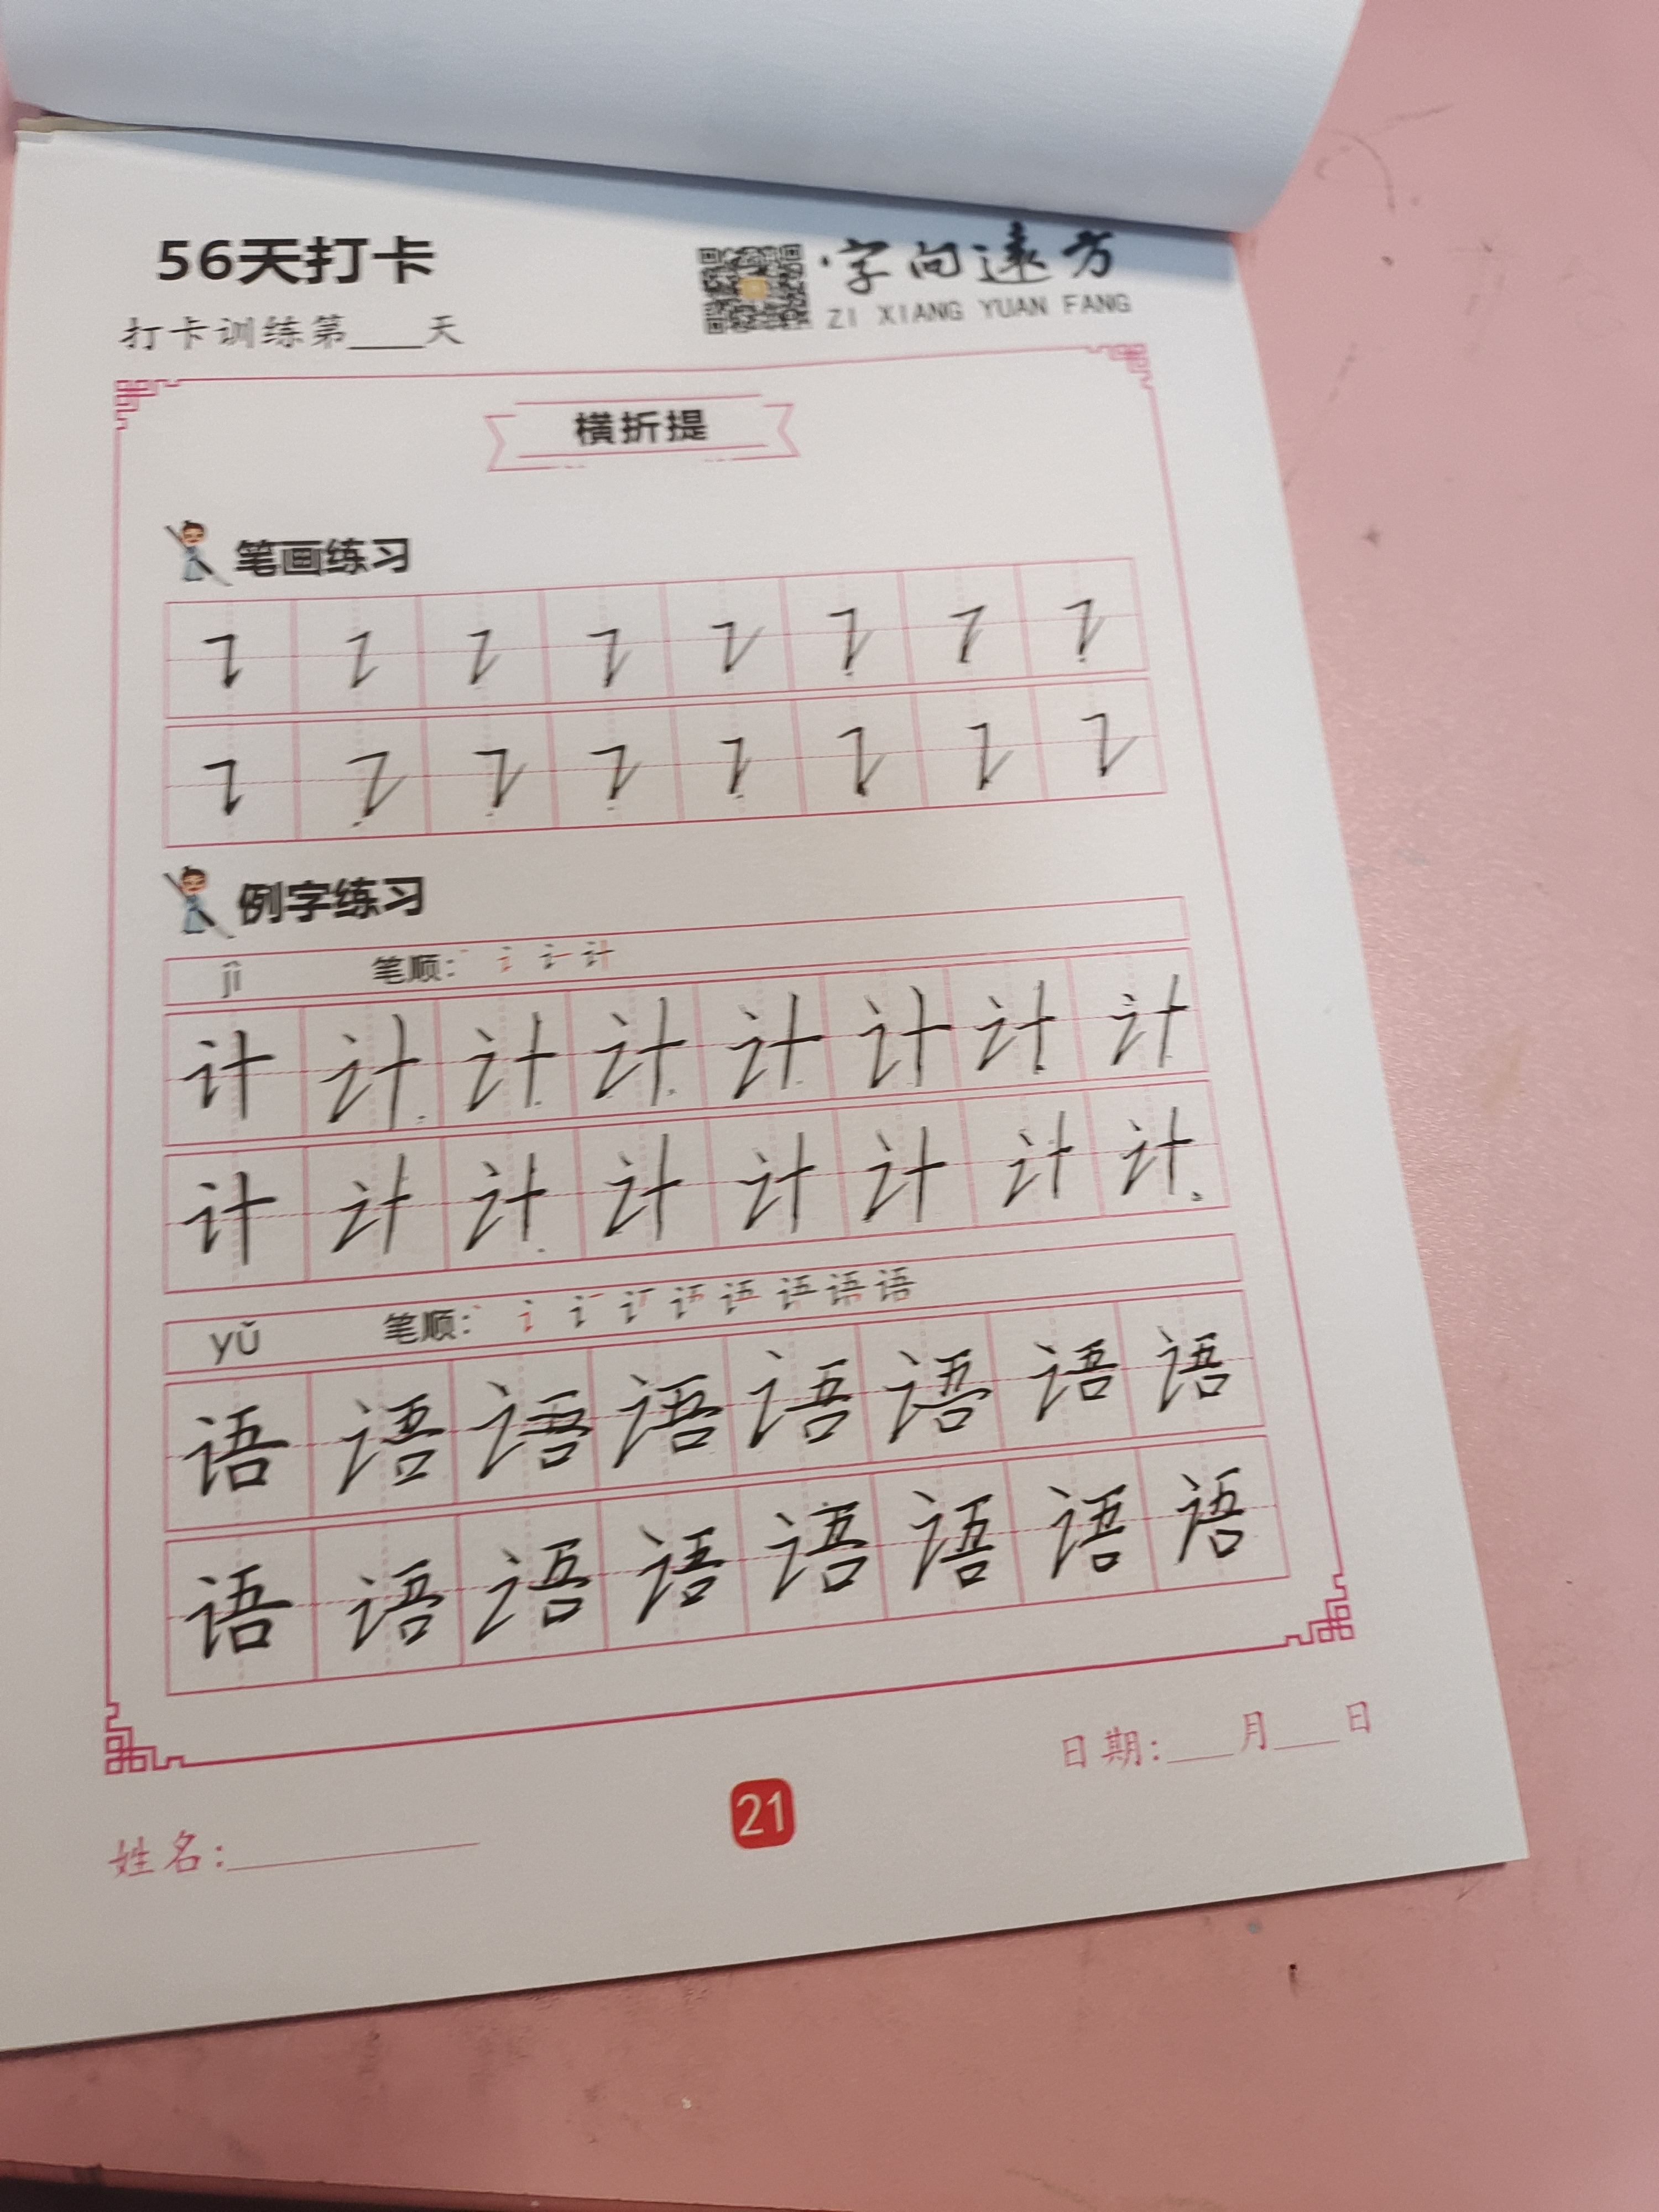 56天打卡
字向远方
ZI XIANG YUAN FANG
打卡训练第___天
横折提
笔画练习
㇊ ㇊ ㇊ ㇊ ㇊ ㇊ ㇊ ㇊
㇊ ㇊ ㇊ ㇊ ㇊ ㇊ ㇊ ㇊
例字练习
jì 笔顺: 丶 讠 计
计 计 计 计 计 计 计 计
计 计 计 计 计 计 计 计
yǔ 笔顺: 丶 讠 语
语 语 语 语 语 语 语 语
语 语 语 语 语 语 语 语
日期:___月___日
21
姓名: